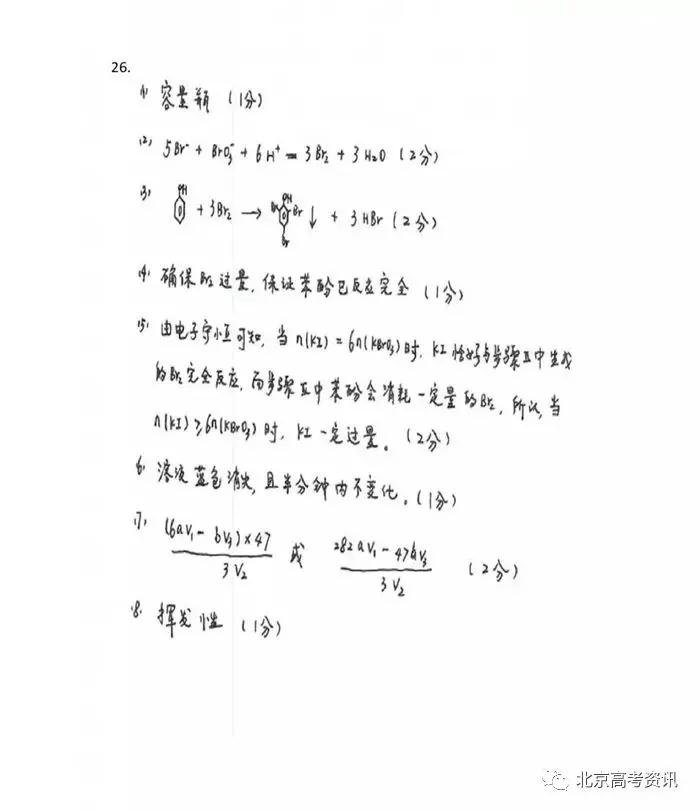 26.
(1) 容量瓶 (1分)
(2) 5Br⁻ + BrO₃⁻ + 6H⁺ = 3Br₂ + 3H₂O (2分)
(3) OH + 3Br₂ → Br OH Br Br ↓ + 3HBr (2分)
(4) 确保Br₂过量,保证苯酚已反应完全 (1分)
(5) 由电子守恒可知,当n(KI) = 6n(KBrO₃)时,KI恰好与步骤Ⅱ中生成
的Br₂完全反应,而步骤Ⅱ中苯酚会消耗一定量的Br₂,所以,当
n(KI) ≥ 6n(KBrO₃)时,KI一定过量。(2分)
(6) 溶液蓝色消失,且半分钟内不变化。(1分)
(7) (6aV₁ - bV₃)×47 / 3V₂ 或 282aV₁ - 47bV₃ / 3V₂ (2分)
(8) 挥发性 (1分)
北京高考资讯